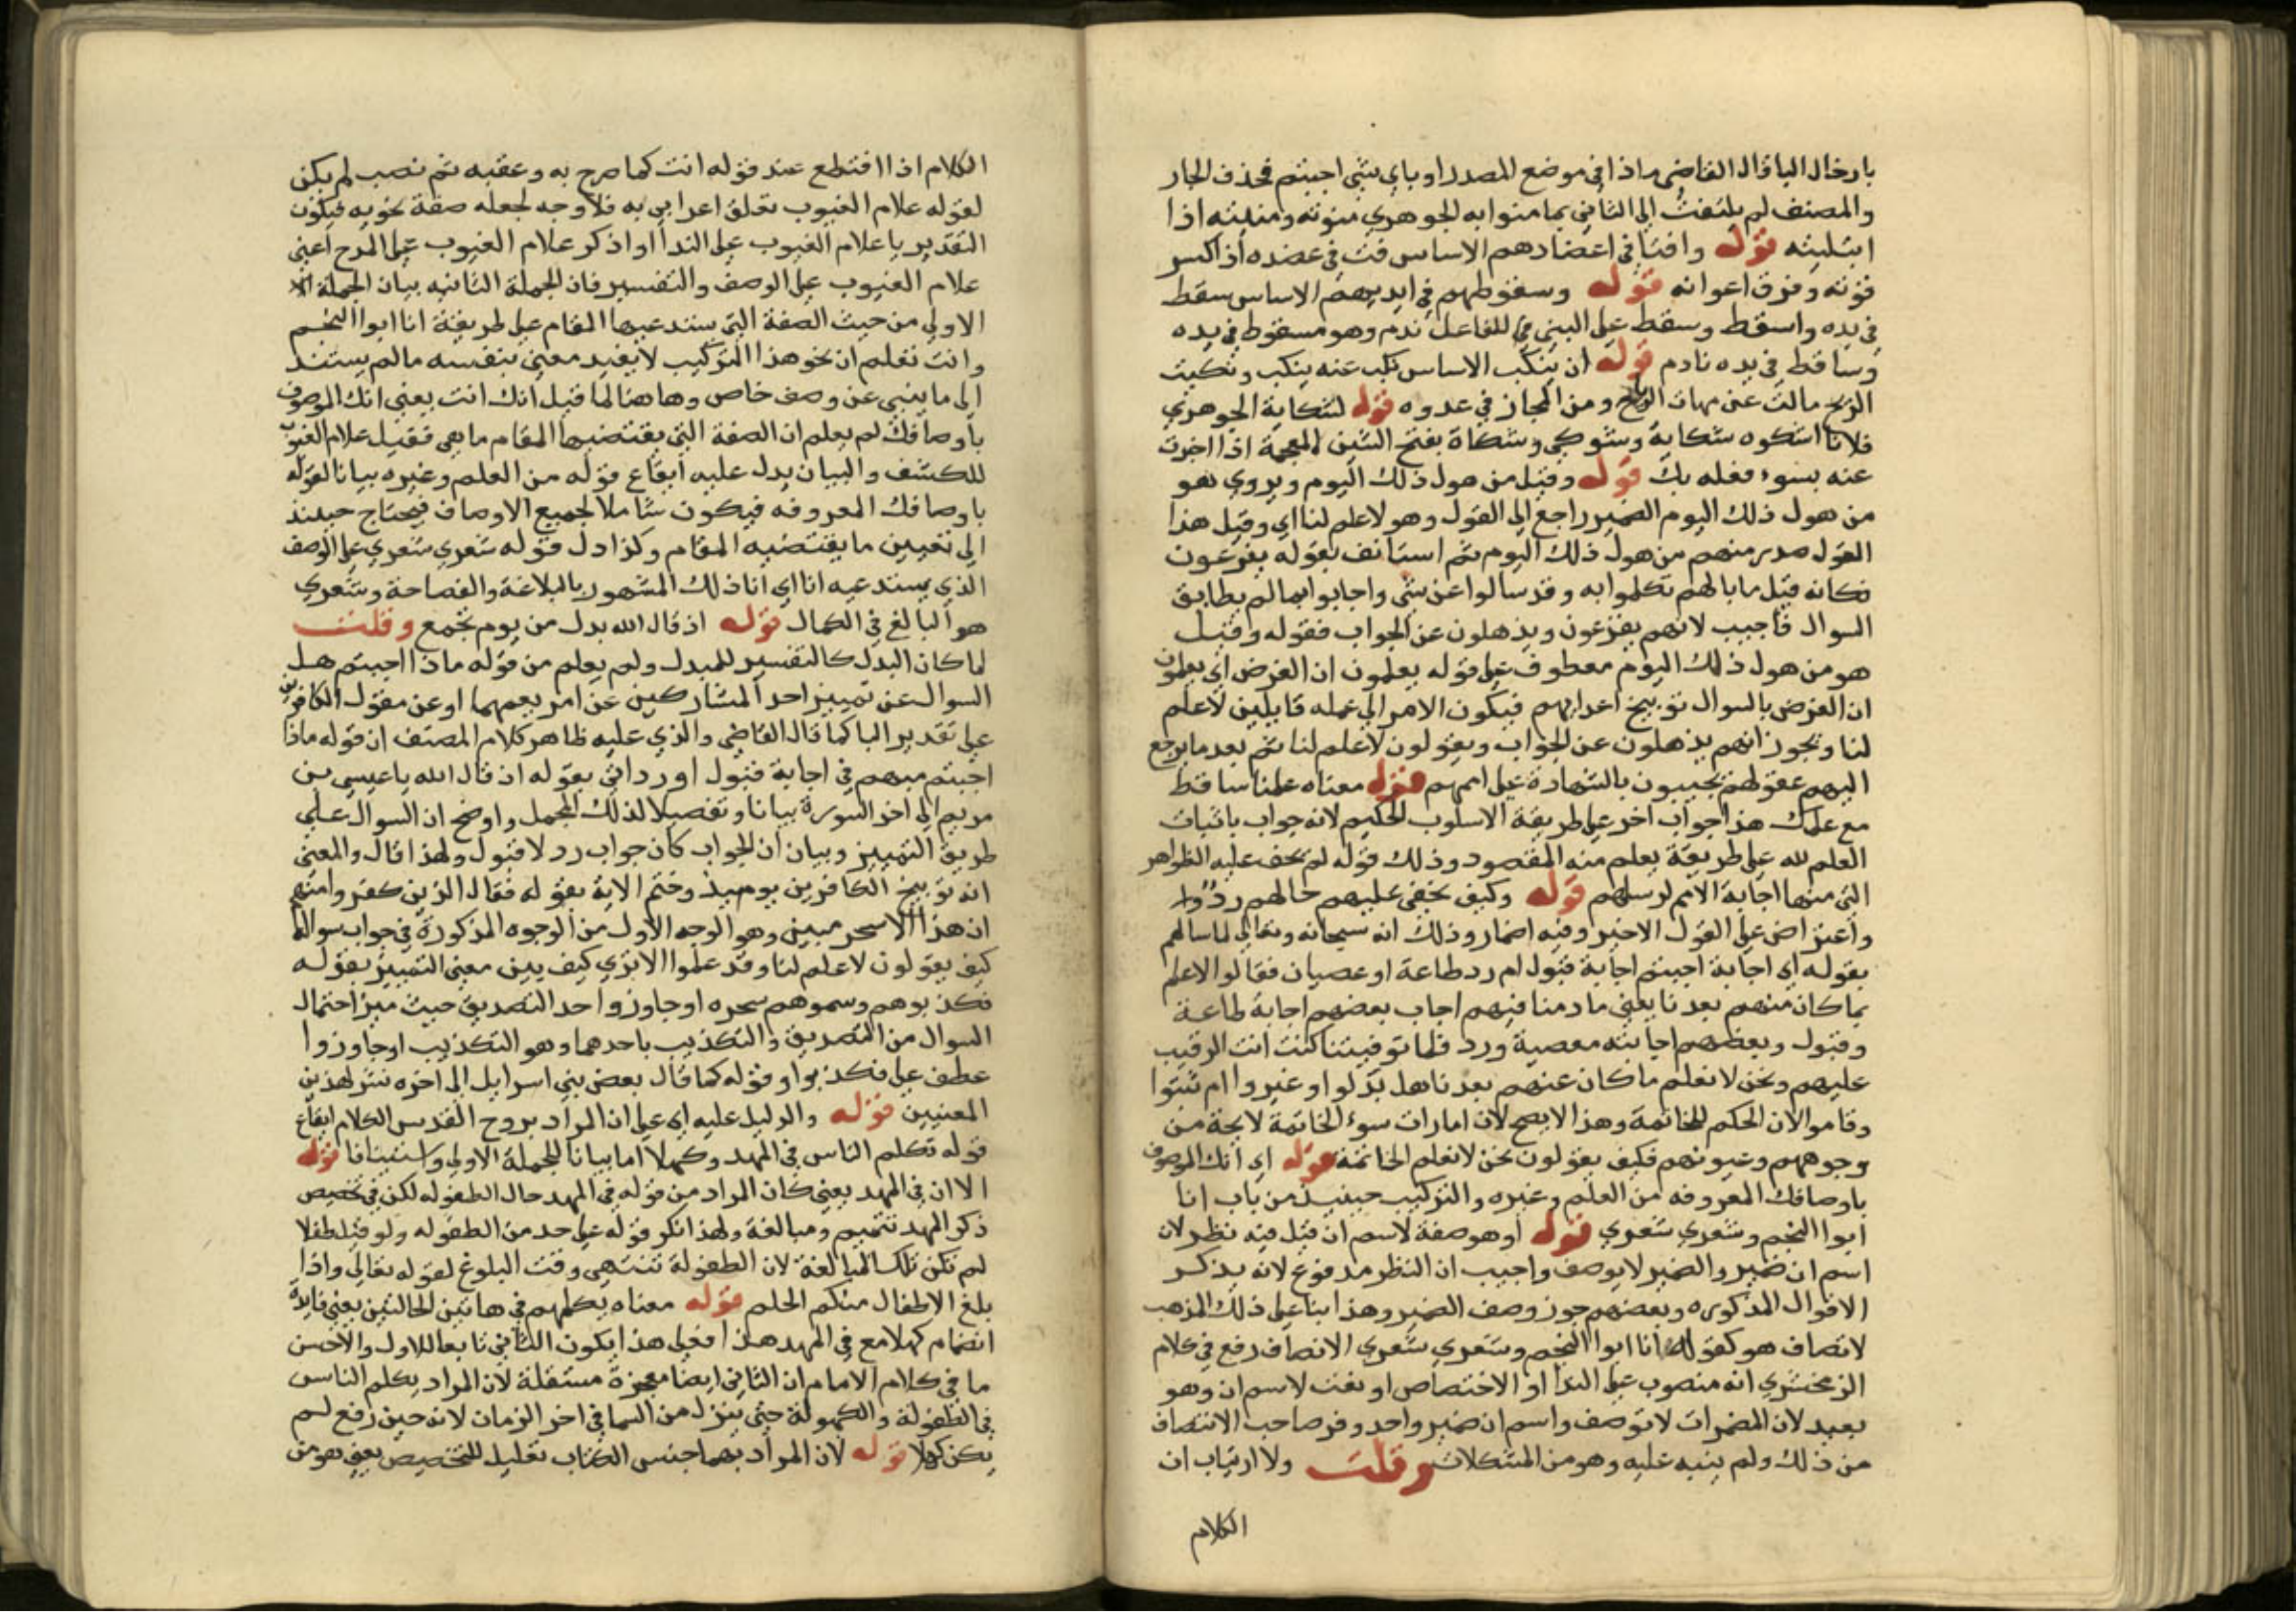 بادخال الباقال القاضي ماذا في موضع المصدر او باي شي اجبتم فحذف الجار
والمصنف لم يلتفت الى الثاني بما منوا به الجوهري منوته ومنيته اذا
ابتليته قوله وافتا في اعضادهم الاساس فت في عضده اذا كسر
قوته وفرق اعوانه قوله وسقوطهم في ايديهم الاساس سقط
في يده واسقط وسقط على البني للفاعل ندم وهو مسقوط في يده
وساقط في يده نادم قوله ان ينكب الاساس نكب عنه ينكب ونكبت
الريح مالت عن مهاب الرياح ومن المجاز في عدوه قوله لشكاية الجوهري
فلانا اشكوه شكاية وشوكي وشكاة بفتح الشين المعجمة اذا اخبرت
عنه بسوء فعله بك قوله وقيل من هول ذلك اليوم ويروي هو
من هول ذلك اليوم الضمير راجع الى القول وهو لا علم لنا اي وقيل هذا
القول صدر منهم من هول ذلك اليوم ثم استانف بقوله يفزعون
فكانه قيل ما بالهم تكلموا به وقد سالوا عن شي واجابوا بما لم يطابق
السوال فاجيب لانهم يفزعون ويذهلون عن الجواب فقوله وقيل
هو من هول ذلك اليوم معطوف على قوله يعلمون ان الغرض اي يعلمون
ان الغرض بالسوال توبيخ اعدايهم فيكون الامر الى علمه قايلين لا علم
لنا ويجوز انهم يذهلون عن الجواب ويقولون لا علم لنا ثم بعد ما يرجع
اليهم عقولهم يجيبون بالشهادة على اممهم قوله معناه علمنا ساقط
مع علمك هذا جواب اخر على طريقة الاسلوب الحكيم لانه جواب باثبات
العلم لله على طريقة يعلم منه المقصود وذلك قوله لم يخف عليه الظواهر
التي منها اجابة الامم لرسلهم قوله وكيف يخفى عليهم حالهم رد
واعتراض على القول الاخير وفيه اضمار وذلك انه سبحانه وتعالى لما سالهم
بقوله اي اجابة اجبتم اجابة قبول ام رد طاعة او عصيان فقالوا لا علم
بما كان منهم بعدنا يعني ما دمنا فيهم اجاب بعضهم اجابة طاعة
وقبول وبعضهم اجابته معصية ورد فلما توفيتنا كنت انت الرقيب
عليهم ونحن لا نعلم ما كان عنهم بعدنا هل بدلوا او غيروا ام ثبتوا
وقاموا لان الحكم للخاتمة وهذا لا يصح لان امارات سوء الخاتمة لايحة من
وجوههم وعيونهم فكيف يقولون نحن لا نعلم الخاتمة قوله اي انك الموصوف
باوصافك المعروفه من العلم وغيره والتركيب حينيذ من باب انا
ابوا النجم وشعري شعري قوله او هو صفة لاسم ان قيل فيه نظر لان
اسم ان ضمير والضمير لا يوصف واجيب ان النظر مدفوع لانه يذكر
الاقوال المذكوره وبعضهم جوز وصف الضمير وهذا بنا على ذلك المذهب
لانصاف هو كقولك انا ابوا النجم وشعري شعري الانصاف رفع في كلام
الزمخشري انه منصوب على الندا او الاختصاص او نعت لاسم ان وهو
بعيد لان المضمرات لا توصف واسم ان ضمير واحد وفر صاحب الانتصاف
من ذلك ولم ينبه عليه وهو من المشكلات وقلت ولا ارتياب ان
الكلام
الكلام اذا اقتطع عند قوله انت كما صرح به وعقبه ثم نصب لم يكن
لقوله علام الغيوب تعلق اعرابي به فلا وجه لجعله صفة نحويه فيكون
التقدير يا علام الغيوب على الندا او اذكر علام الغيوب على المدح اعني
علام الغيوب على الوصف والتفسير فان الجملة الثانيه بيان الجملة
الاولى من حيث الصفة التي يستدعيها المقام على طريقة انا ابوا النجم
وانت تعلم ان نحو هذا التركيب لا يفيد معنى بنفسه ما لم يستند
الى ما ينبي عن وصف خاص وهاهنا لما قيل انك انت يعني انك الموصوف
باوصافك لم يعلم ان الصفة التي يقتضيها المقام ما هي فقيل علام الغيوب
للكشف والبيان يدل عليه ايقاع قوله من العلم وغيره بيانا لقوله
باوصافك المعروفه فيكون شاملا لجميع الاوصاف فيحتاج حينيذ
الى تعيين ما يقتضيه المقام وكذا دل قوله شعري شعري على الوصف
الذي يستدعيه انا اي انا ذلك المشهور بالبلاغة والفصاحة وشعري
هو البالغ في الكمال قوله اذ قال الله بدل من يوم يجمع وقلت
لما كان البدل كالتفسير للمبدل ولم يعلم من قوله ماذا اجبتم هل
السوال عن تمييز احد المشاركين عن امر يعمهما او عن مقول الكافرين
على تقدير البا كما قال القاضي والذي عليه ظاهر كلام المصنف ان قوله ماذا
اجبتم مبهم في اجابة قبول او رد اتى بقوله اذ قال الله يا عيسى بن
مريم الى اخر السورة بيانا وتفصيلا لذلك المجمل واوضح ان السوال على
طريق التمييز وبيان ان الجواب كان جواب رد لا قبول ولهذا قال والمعنى
انه توبيخ الكافرين يوميذ وختم الاية بقوله فقال الذين كفروا منهم
ان هذا الا سحر مبين وهو الوجه الاول من الوجوه المذكورة في جواب سواله
كيف يقولون لا علم لنا وقد علموا الا تري كيف بين معنى التمييز بقوله
فكذبوهم وسموهم سحره او جاوزوا حد التصديق حيث ميز احتمال
السوال من التصديق والتكذيب باحدهما وهو التكذيب او جاوزوا
عطف على فكذبوا وقوله كما قال بعض بني اسرايل الى اخره نشر لهذين
المعنيين قوله والدليل عليه اي على ان المراد بروح القدس الكلام ايقاع
قوله تكلم الناس في المهد وكهلا اما بيانا للجملة الاولى واستينافا قوله
الا ان في المهد يعني كان المراد من قوله في المهد حال الطفوله لكن في تخصيص
ذكر المهد تتميم ومبالغة ولهذا نكر قوله على حد من الطفوله ولو قيل طفلا
لم تكن تلك المبالغة لان الطفولة تنتهي وقت البلوغ لقوله تعالى واذا
بلغ الاطفال منكم الحلم قوله معناه يكلمهم في هاتين الحالتين يعني فايدة
انضمام كهلا مع في المهد هذا فعلى هذا يكون الثاني تابعا للاول والاحسن
ما في كلام الامام ان الثاني ايضا معجزة مستقلة لان المراد يكلم الناس
في الطفولة والكهولة حتى ينزل من السما في اخر الزمان لانه حين رفع لم
يكن كهلا قوله لان المراد بهما جنس الكتاب تعليل للتخصيص يعني هو من